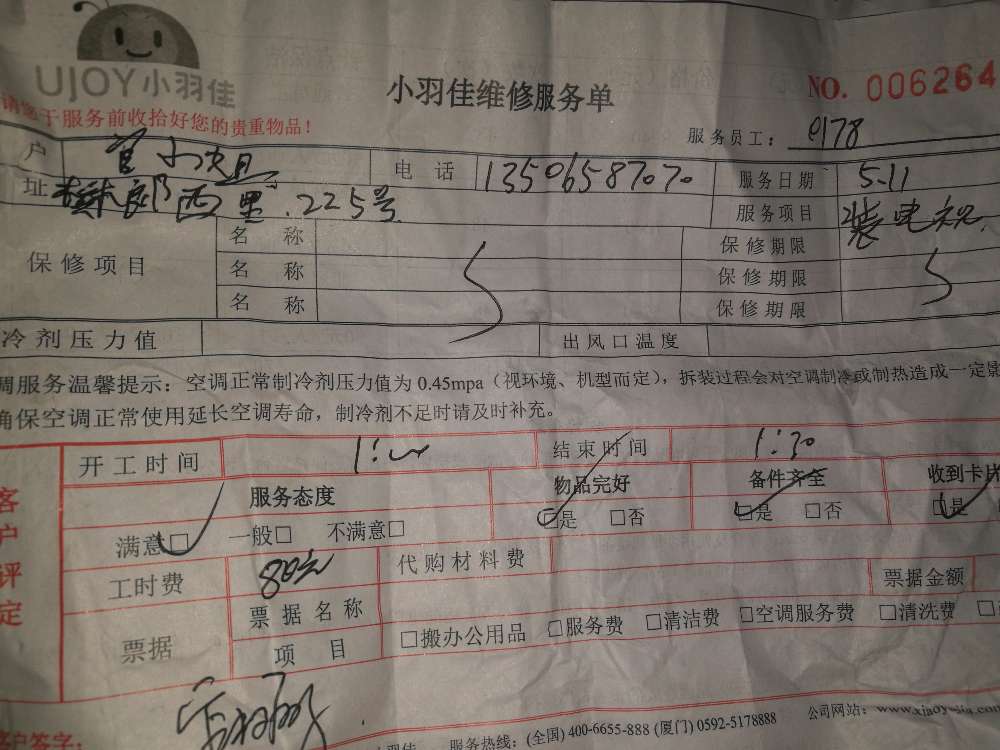 UJOY小羽佳
小羽佳维修服务单
NO. 006264
请您于服务前收拾好您的贵重物品！
服务员工： 0178
户 电 话 13506587070 服务日期 5-11
址 西里.225号 服务项目 装电视
保修项目 名 称 保修期限
名 称 保修期限
名 称 保修期限
冷剂压力值 出风口温度
调服务温馨提示：空调正常制冷剂压力值为 0.45mpa（视环境、机型而定），拆装过程会对空调制冷或制热造成一定影
确保空调正常使用延长空调寿命，制冷剂不足时请及时补充。
客户评定
开工时间 1: 结束时间 1:30
服务态度 物品完好 备件齐全 收到卡片
满意□ 一般□ 不满意□ □是 □否 □是 □否 □是
工时费 80元 代购材料费
票据 票据名称 票据金额
项 目 □搬办公用品 □服务费 □清洁费 □空调服务费 □清洗费
客户签字：
服务热线：(全国) 400-6655-888 (厦门) 0592-5178888 公司网站：